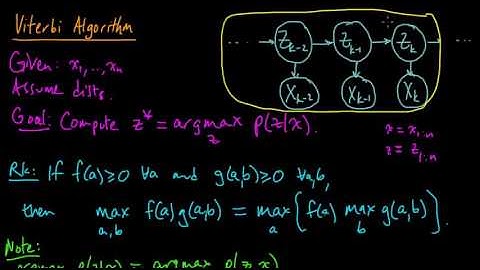 Viterbi Algorithm
Given: x₁,..,xₙ
Assume dists.
Goal: Compute z* = argmax_z p(z|x).
... Z_{k-2} Z_{k-1} Z_k ...
X_{k-2} X_{k-1} X_k
x = x_{1:n}
z = z_{1:n}
Rk: If f(a)≥0 ∀a and g(a,b)≥0 ∀a,b,
then max_{a,b} f(a)g(a,b) = max_a [f(a) max_b g(a,b)].
Note:
argmax p(z|x) = argmax p(z,x)